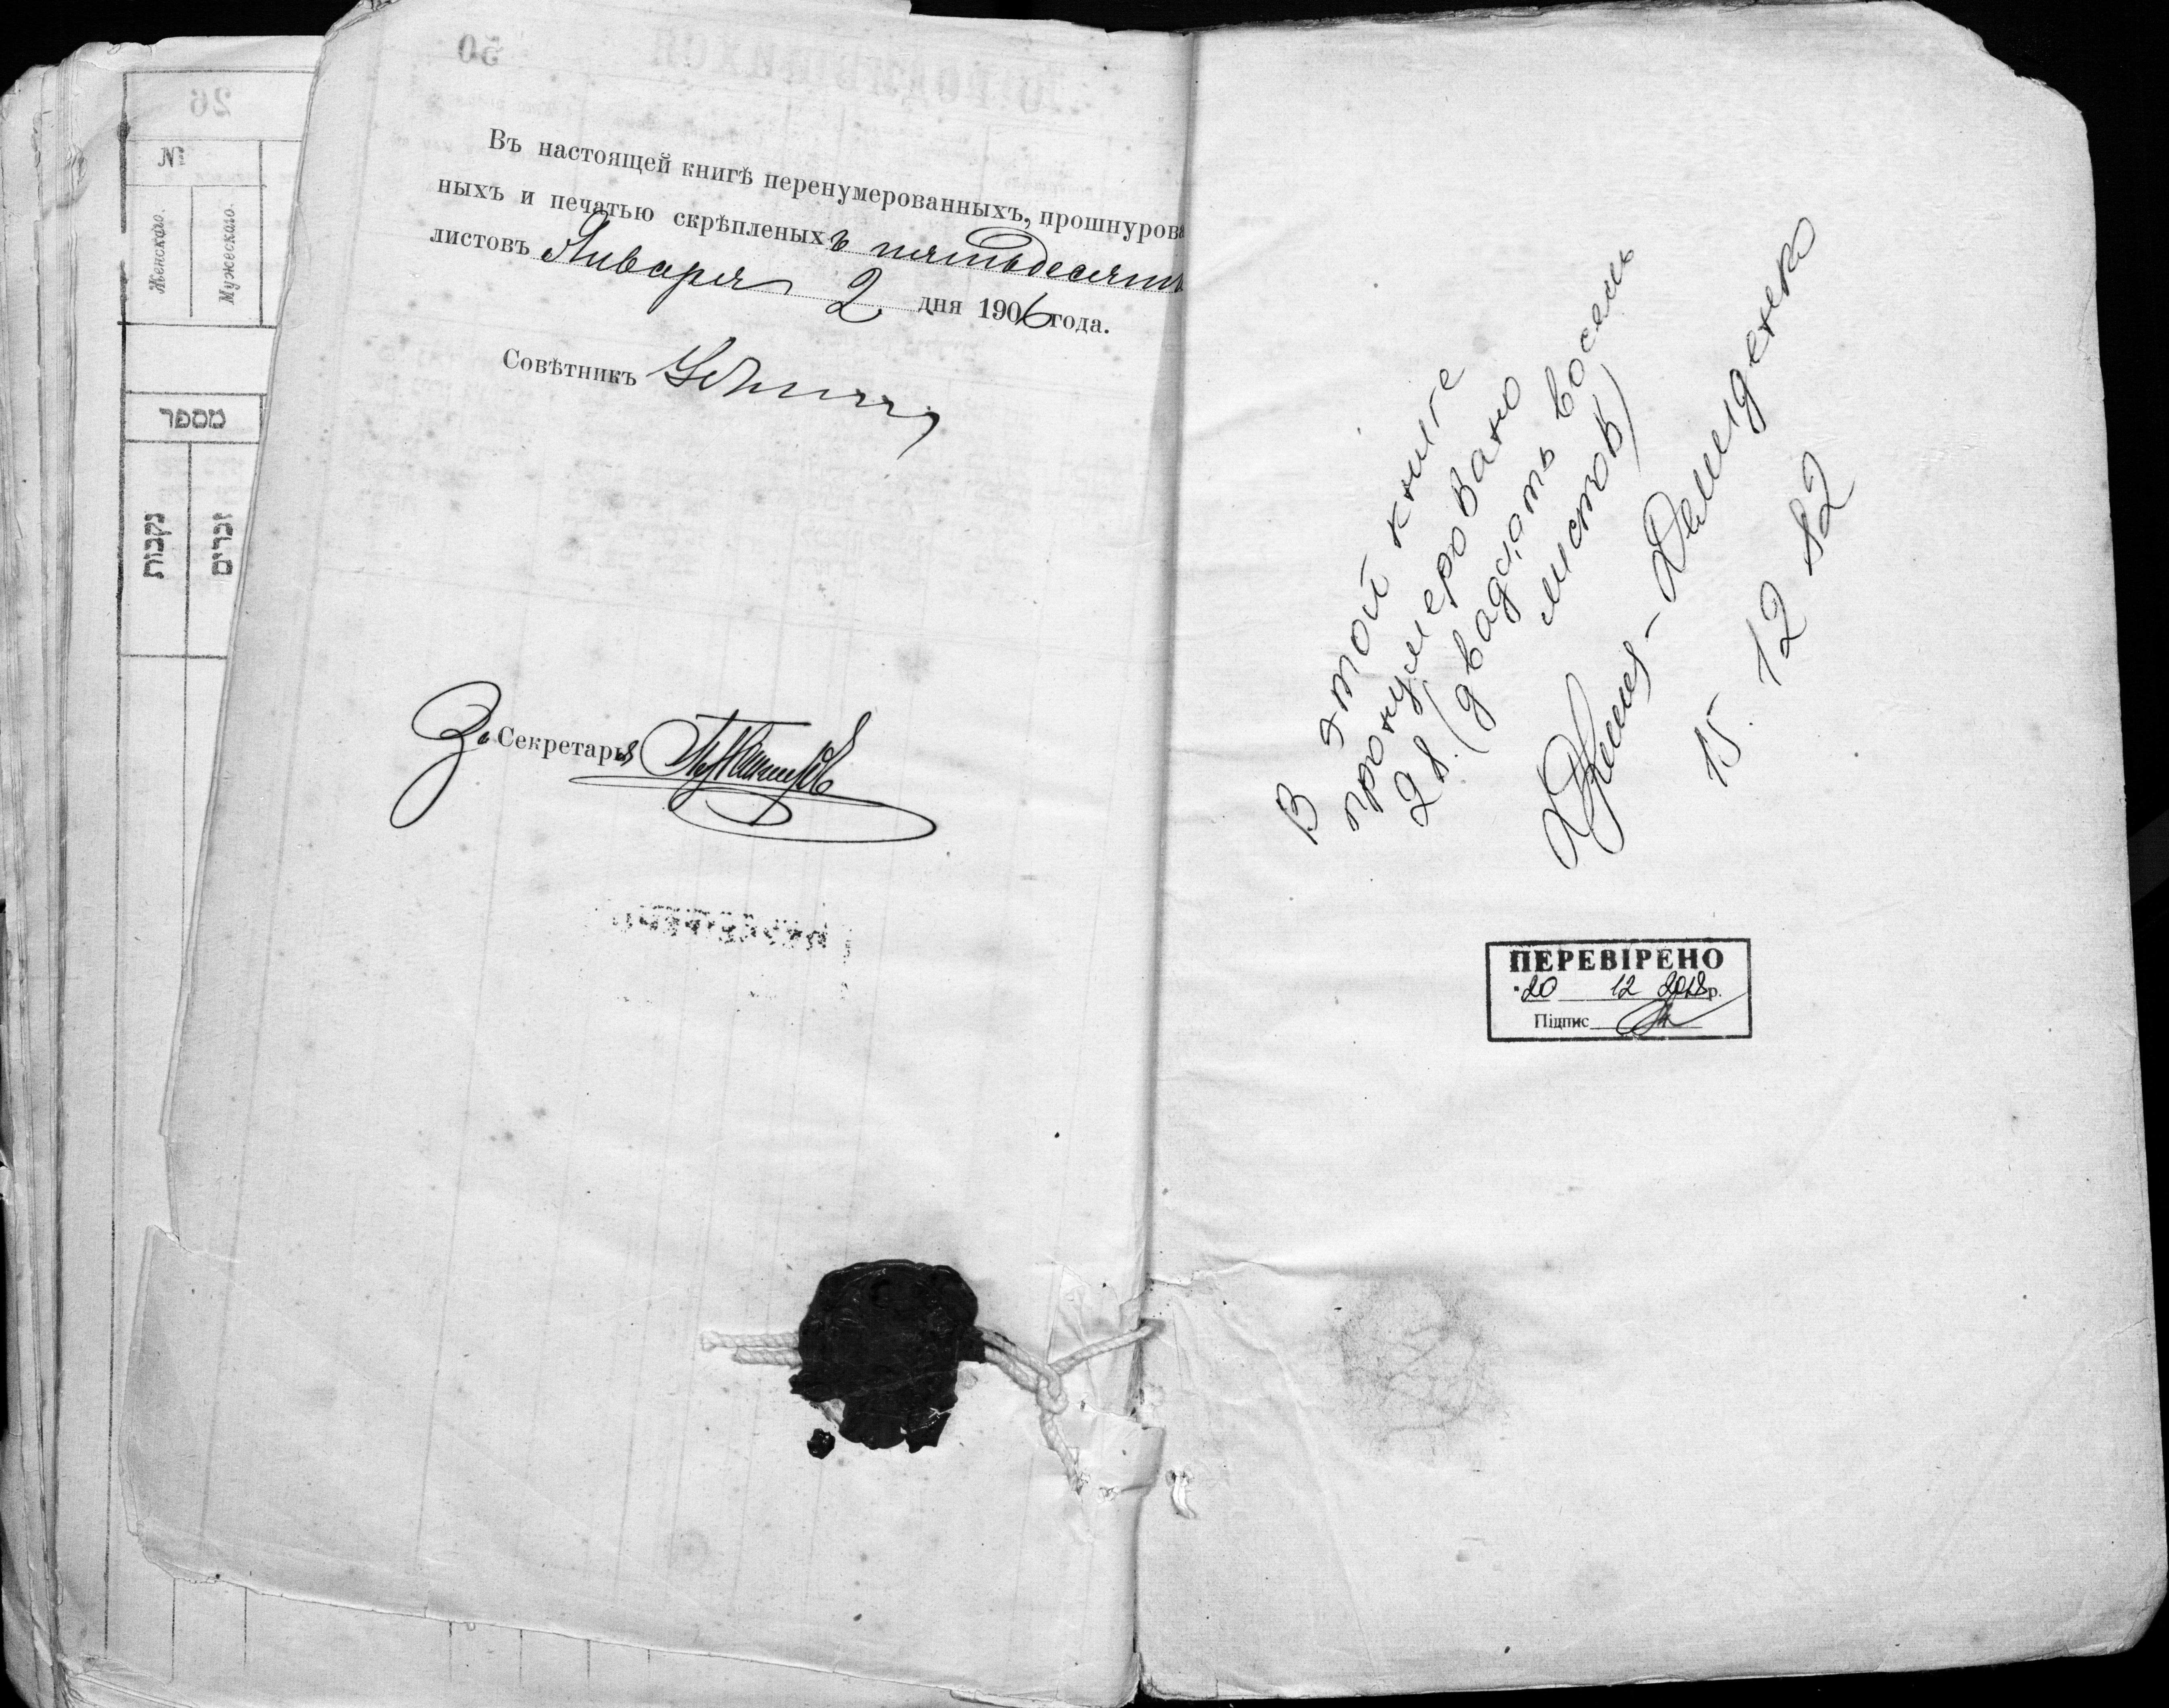 26
№
Женскаго.
Мужескаго.
מספר
נקבות
זכרים
50
О РОДИВШИХСЯ
Въ настоящей книгѣ перенумерованныхъ, прошнурова
ныхъ и печатью скрѣпленыхъ пятьдесятъ
листовъ Января 2 дня 1906 года.
Совѣтникъ
За Секретаря
В этой книге
пронумеровано
28 (двадцать восемь
листов)
Демиденко
15. 12 82
ПЕРЕВІРЕНО
20 12 2018р.
Підпис